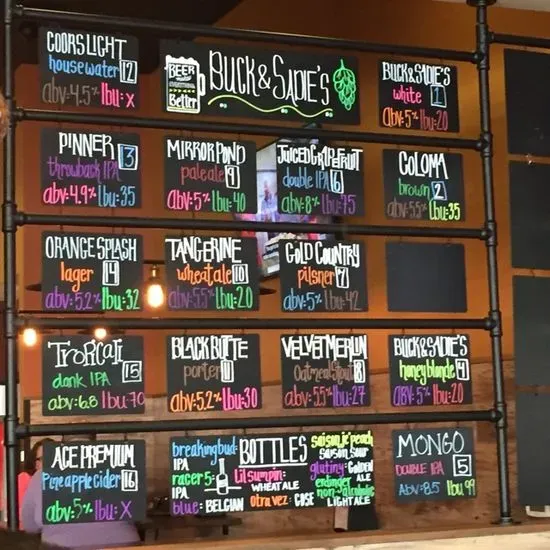 COORS LIGHT
house water 12
abv: 4.5% Ibu: x
BEER
Better
BUCK & SADIE'S
BUCK & SADIE'S
white 1
abv: 5% Ibu: 20
PINNER 3
throwback IPA
abv: 4.9% Ibu: 35
MIRROR POND
pale ale 9
abv: 5% Ibu: 40
JUICED GRAPEFRUIT
double IPA 6
abv: 8% Ibu: 75
COLOMA
brown 2
abv: 5.5% Ibu: 35
ORANGE SPLASH
lager 14
abv: 5.2% Ibu: 32
TANGERINE
wheat ale 10
abv: 5.5% Ibu: 20
GOLD COUNTRY
pilsner 7
abv: 5% Ibu: 42
TROPICALI
dank IPA 15
abv: 6.8 Ibu: 70
BLACK BUTTE
porter 11
abv: 5.2% Ibu: 30
VELVET MERLIN
Oatmeal Stout 8
abv: 5.5% Ibu: 27
BUCK & SADIE'S
honey blonde 4
abv: 5% Ibu: 20
ACE PREMIUM
Pineapple cider 16
abv: 5% Ibu: x
BOTTLES
breaking bud:
IPA
racer 5:
IPA
blue: BELGIAN
Lil sumpin:
WHEAT ALE
otra vez: GOSE
saison je peach
SAISON, SOUR
glutiny: GOLDEN ALE
erdinger
non-alcoholic
LIGHT ALE
MONGO
DOUBLE IPA 5
abv: 8.5 Ibu: 99